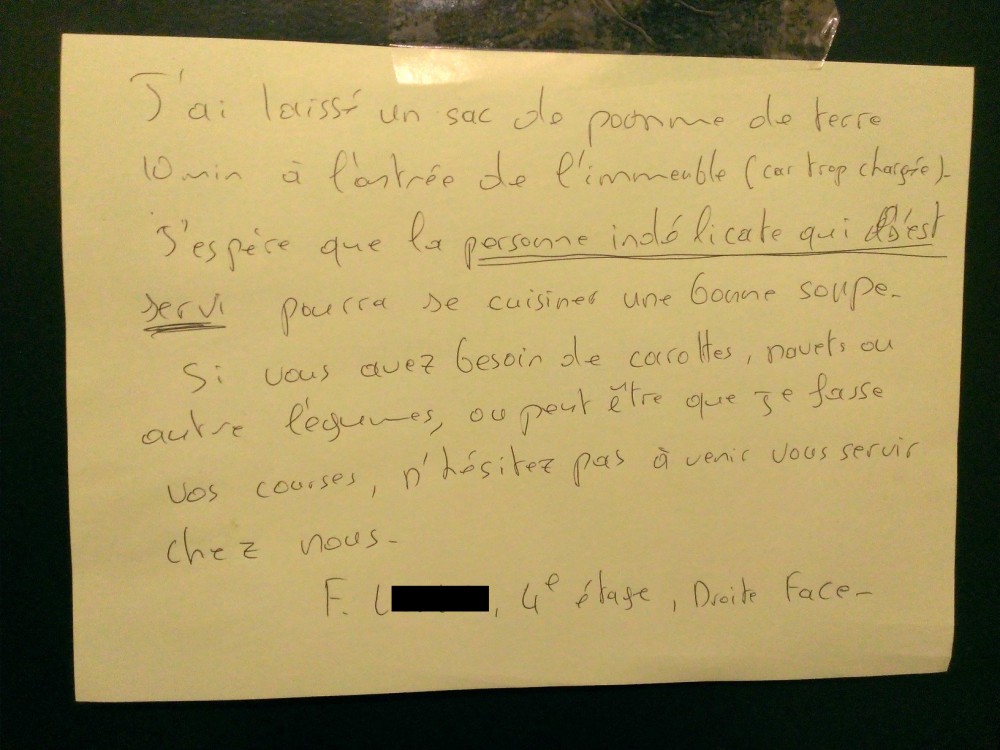 J'ai laissé un sac de pomme de terre
10min à l'entrée de l'immeuble (car trop chargée).
J'espère que la personne indélicate qui s'est
servi pourra se cuisiner une bonne soupe.
Si vous avez besoin de carottes, navets ou
autre légumes, ou peut être que je fasse
vos courses, n'hésitez pas à venir vous servir
chez nous.
F. L , 4e étage, Droite Face.